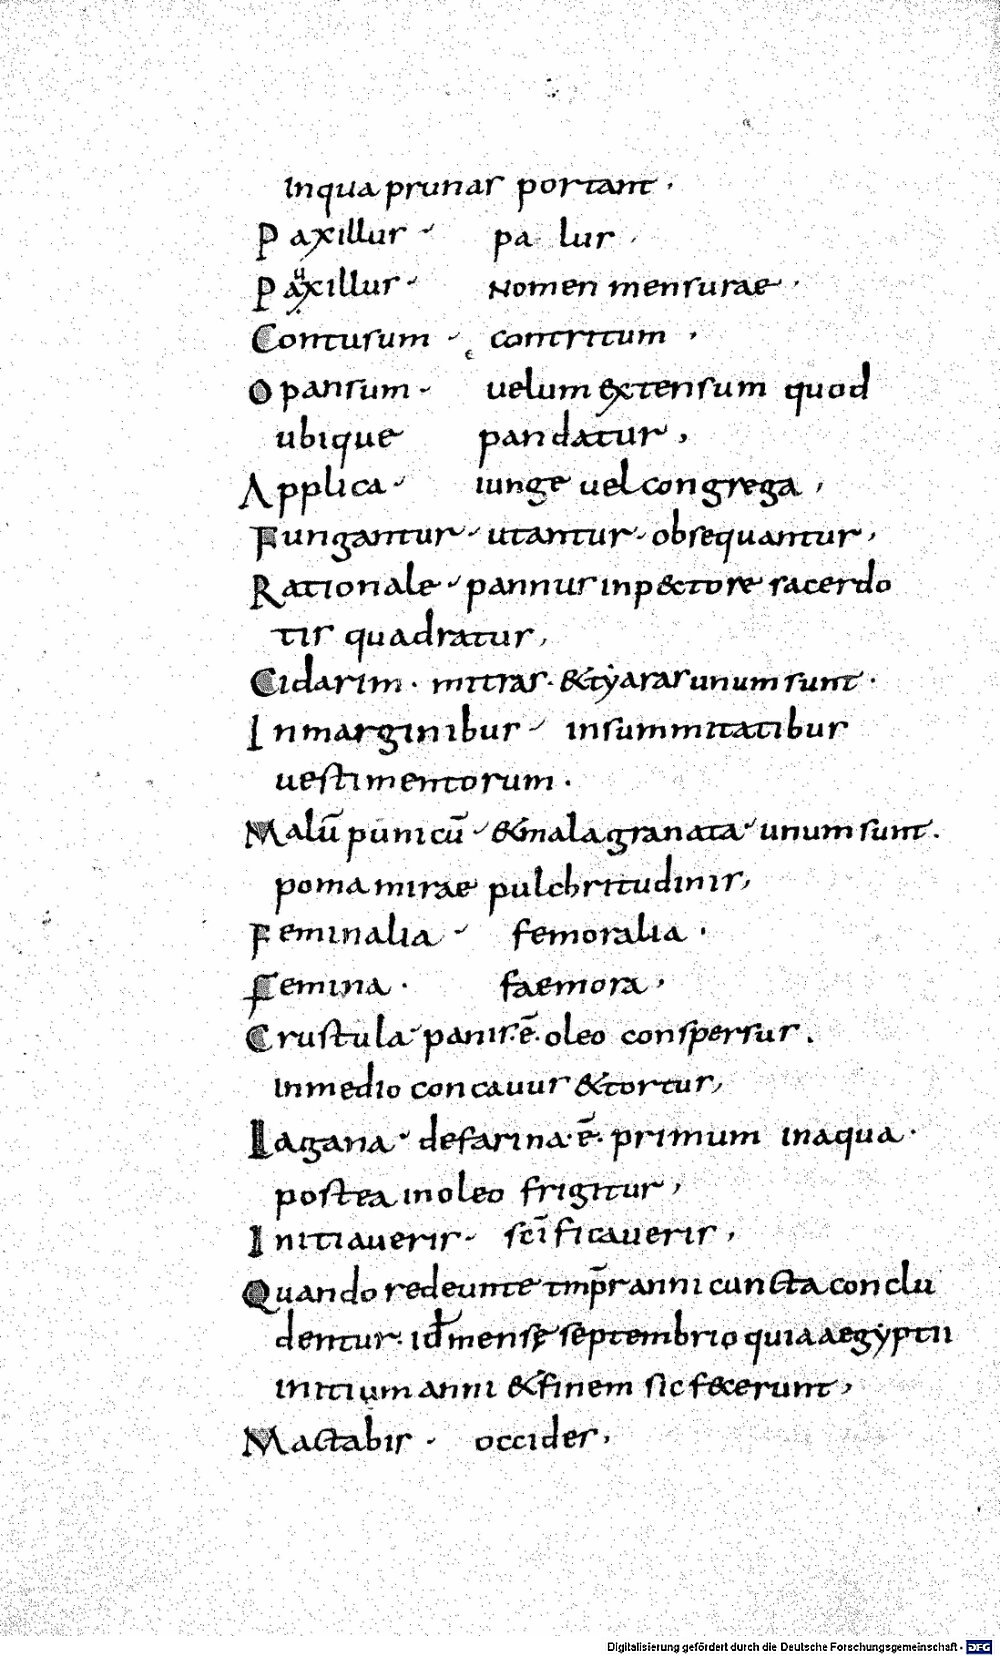 inqua prunas portant.
Paxillus pa lus
Pauxillus. Nomen mensurae.
Contusum. contritum,
Opansum. uelum extensum quod
ubique pandatur,
Applica. iunge uel congrega,
Fungantur. utantur. obsequantur,
Rationale. pannus inpectore sacerdo
tis quadratus,
Cidarim. mitras. & tyaras unum sunt.
Inmarginibus. insummitatibus
uestimentorum.
Malū punicū. & mala granata. unum sunt.
poma mirae pulchritudinis,
Feminalia. femoralia.
Femina. faemora,
Crustula. panis. ē. oleo conspersus.
Inmedio concauus & tortus,
Lagana. defarina. ē. primum inaqua.
postea inoleo frigitur,
Initiaueris. scīficaueris,
Quando redeunte tmp̄r anni cuncta conclu
dentur. id mense septembrio quia aegyptii
initium anni & finem sic fecerunt,
Mactabis. occides,
Digitalisierung gefördert durch die Deutsche Forschungsgemeinschaft - DFG